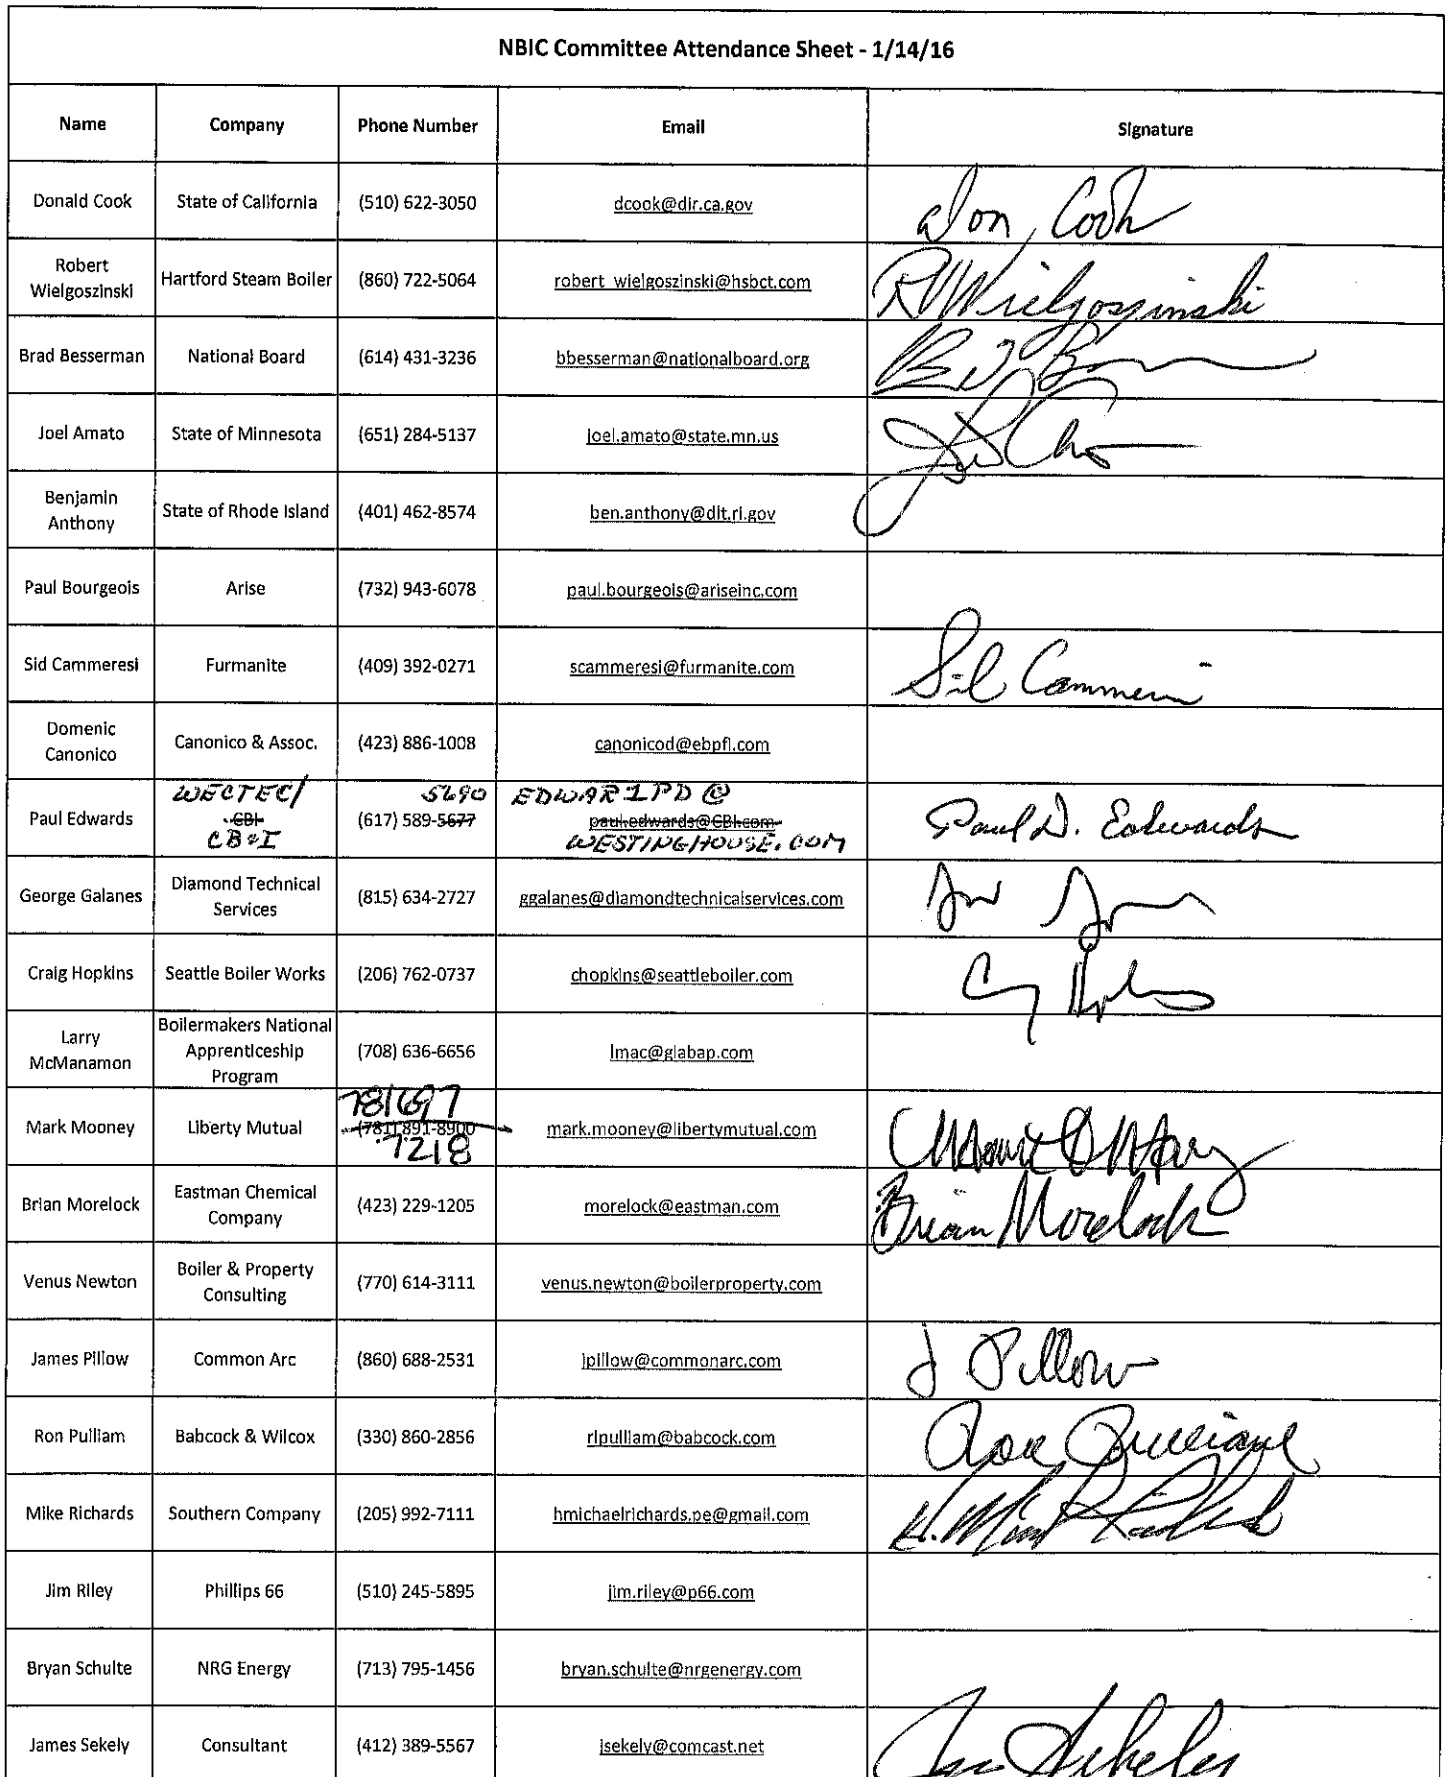 NBIC Committee Attendance Sheet - 1/14/16
Name Company Phone Number Email Signature
Donald Cook State of California (510) 622-3050 dcook@dir.ca.gov Don Cook
Robert
Wielgoszinski Hartford Steam Boiler (860) 722-5064 robert_wielgoszinski@hsbct.com RVWielgoszinski
Brad Besserman National Board (614) 431-3236 bbesserman@nationalboard.org
Joel Amato State of Minnesota (651) 284-5137 joel.amato@state.mn.us
Benjamin
Anthony State of Rhode Island (401) 462-8574 ben.anthony@dlt.ri.gov
Paul Bourgeois Arise (732) 943-6078 paul.bourgeois@ariseinc.com
Sid Cammeresi Furmanite (409) 392-0271 scammeresi@furmanite.com Sid
Domenic
Canonico Canonico & Assoc. (423) 886-1008 canonicod@ebpfl.com
WECTEC/ 5690 EDWAR1PD@
Paul Edwards CBI (617) 589-5677 paul.edwards@CBI.com Paul D. Edwards
CB&I WESTINGHOUSE.COM
George Galanes Diamond Technical
Services (815) 634-2727 ggalanes@diamondtechnicalservices.com
Craig Hopkins Seattle Boiler Works (206) 762-0737 chopkins@seattleboiler.com
Larry
McManamon Boilermakers National
Apprenticeship
Program (708) 636-6656 lmac@glabap.com
781697
Mark Mooney Liberty Mutual (781) 891-8900 mark.mooney@libertymutual.com
7218
Brian Morelock Eastman Chemical
Company (423) 229-1205 morelock@eastman.com Brian Morelock
Venus Newton Boiler & Property
Consulting (770) 614-3111 venus.newton@boilerproperty.com
James Pillow Common Arc (860) 688-2531 jpillow@commonarc.com J Pillow
Ron Pulliam Babcock & Wilcox (330) 860-2856 rlpulliam@babcock.com Ron Pulliam
Mike Richards Southern Company (205) 992-7111 hmichaelrichards.pe@gmail.com
Jim Riley Phillips 66 (510) 245-5895 jim.riley@p66.com
Bryan Schulte NRG Energy (713) 795-1456 bryan.schulte@nrgenergy.com
James Sekely Consultant (412) 389-5567 jsekely@comcast.net